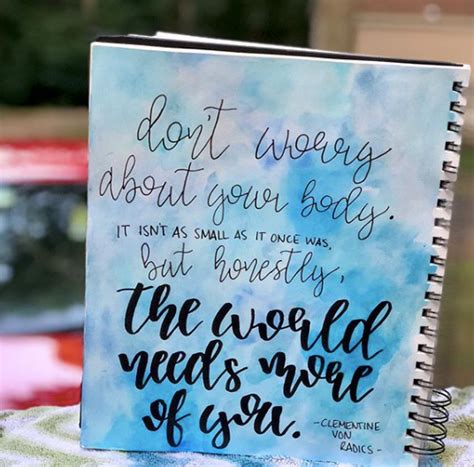 don't worry
about your body.
IT ISN'T AS SMALL AS IT ONCE WAS,
but honestly,
the world
needs more
of you.
-CLEMENTINE
VON
RADICS-